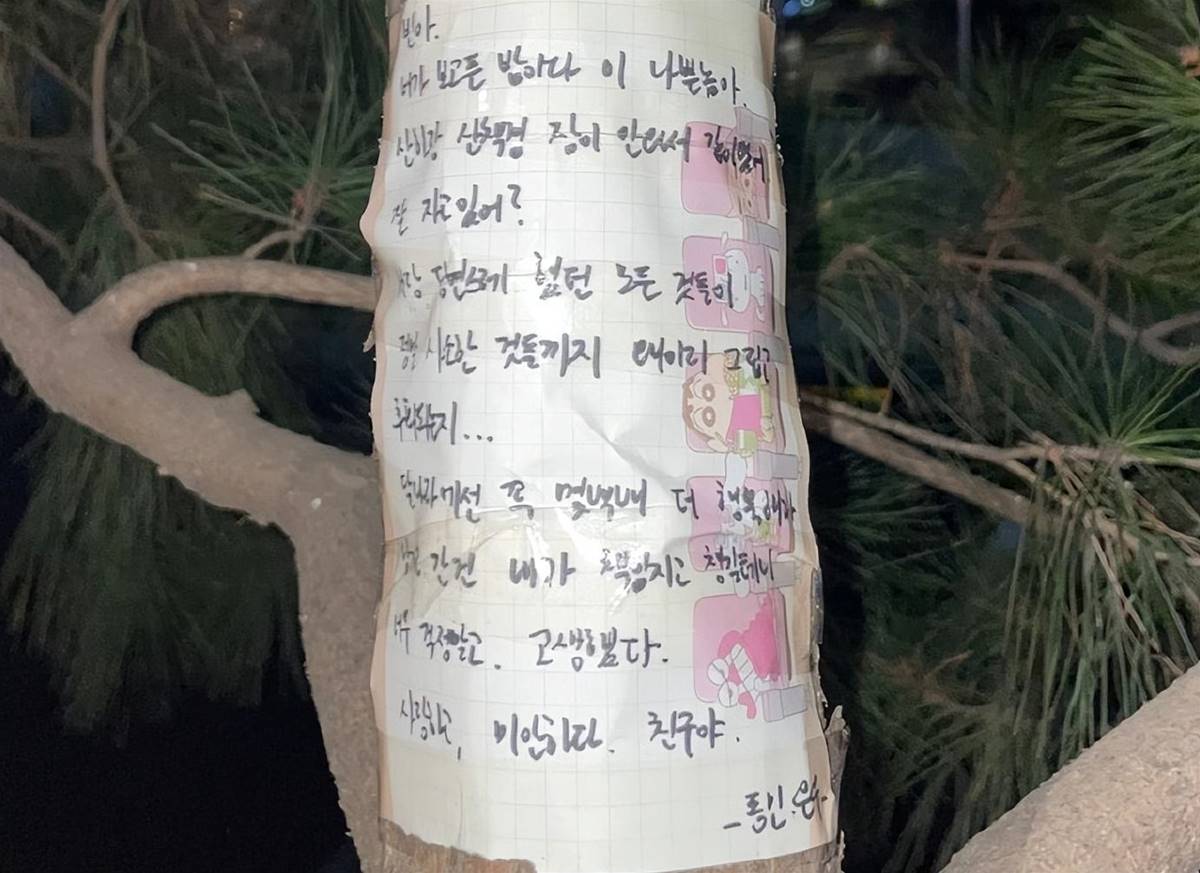 빈아.
너가 보고픈 밤이다 이 나쁜놈아.
산하랑 산책겸 잠이 안와서 같이왔어
잘 자고있어?
가장 당연스레 했던 모든 것들이
정말 사소한 것들까지 매이리 그립고
후회하는지...
달나라에선 꼭 몇백배 더 행복해야
놓고 간건 내가 꼭 챙길테니
너무 걱정말고. 고생했다.
사랑하고, 미안하다. 친구야.